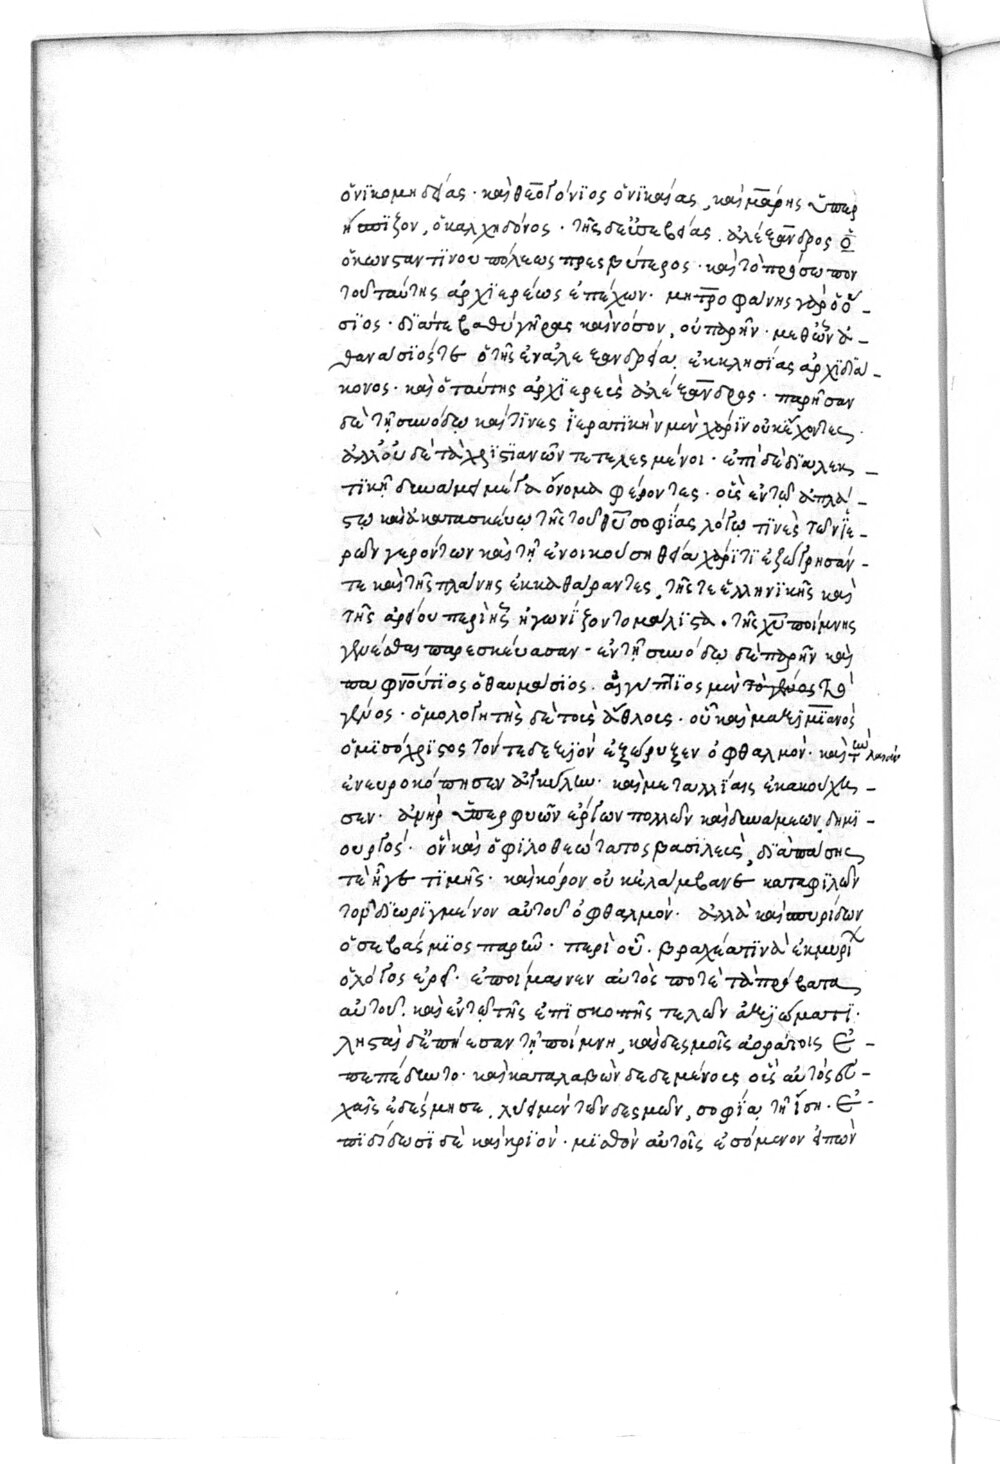 ὁ νϊκομηδείας · καὶ θεόγονϊος ὁ νϊκαίας, καὶ μάρης ὑπερ
ήπϊζον, ὁ καλχηδόνος · τῆς δὲ εὐσεβείας ἀλέξανδρος ὁ
ὁ κωνσαντίνου πόλεως πρεσβύτερος · καὶ τὸ πρόσωπον
τοῦ ταύτης ἀρχϊερέως ἐπέχων · μητροφάνης γὰρ ὁ ὅ–
σϊος · διά τε βαθύ γῆρας καὶ νόσον, οὐ παρῆν · μεθ' ὧν ἀ–
θανάσϊός τε ὁ τῆς ἐν ἀλεξανδρεία ἐκκλησίας ἀρχϊδϊά–
κονος · καὶ ὁ ταύτης ἀρχϊερεὺς ἀλέξανδρος · παρῆσαν
δὲ τῆ συνόδω καί τϊνες ἱερατϊκὴν μὲν χάρϊν οὐκ ἔχοντες ·
ἀλλ' οὐδὲ τὰ χρϊστϊανῶν τετελεσμένοι · ἐπὶ δὲ διαλεκ–
τϊκῆ δυνάμει μέγα ὄνομα φέροντες · οἷς ἐν τῶ ἀπλά–
στω καὶ ἀκατασκεύω τῆς τοῦ θυ σοφίας λόγω τϊνὲς τῶν ἱε–
ρῶν γερόντων καὶ τῆ ἐνοικούση θεία χάρϊτϊ ἐξώγρησάν
τε καὶ τῆς πλάνης ἐκκαθάραντες, τῆς τε ἑλληνϊκῆς καὶ
τῆς ἀρείου περὶ ἧς ἠγωνίζοντο μάλϊστα · τῆς χυ ποίμνης
γενέσθαι παρεσκεύασαν · ἐν τῆ συνόδω δὲ παρῆν καὶ
παφνούτϊος ὁ θαυμάσϊος · αἰγύπτϊος μὲν τὸ γένος
γένος · ὁμολογητὴς δὲ τοῖς ἄθλοις · οὗ καὶ μαξϊμϊανὸς
ὁ μϊσόχρϊστος τόν τε δεξϊὸν ἐξώρυξεν ὀφθαλμόν · καὶ τὼ λαιὰν
ἐνευροκόπησεν ἀγκύλην · καὶ μεταλλίαις ἐκακούχη–
σεν · ἀνὴρ ὑπερφυῶν ἔργων πολλῶν καὶ δυνάμεων δημϊ–
ουργός · ὃν καὶ ὁ φϊλοθεώτατος βασϊλεὺς, διὰ πάσης
τε ἦγε τϊμῆς · καὶ κόρον οὐκ ἐλάμβανε καταφϊλῶν
τὸν διωρϊγμένον αὐτοῦ ὀφθαλμόν · ἀλλὰ καὶ σπυρίδων
ὁ σεβάσμϊος παρῆν · περὶ οὗ · βραχέα τϊνὰ ἐκ μυρί
ὁ λόγος ἐρεῖ · ἐποίμαινεν αὐτός ποτε τὰ πρόβατα
αὐτοῦ, καὶ ἐν τῶ τῆς ἐπϊσκοπῆς τελῶν ἀξϊώματϊ ·
λησταὶ δ' ἐπήεσαν τῆ ποίμνη, καὶ δεσμοῖς ἀοράτοις ἐ–
πεπέδηντο · καὶ καταλαβὼν δεδεμένους οὓς αὐτὸς εὐ–
χαῖς ἐδέσμησε, λύει μὲν τῶν δεσμῶν, σοφία τῆ ἴση · ἐ–
πϊδίδωσϊ δὲ καὶ κρϊόν · μϊσθὸν αὐτοῖς ἐσόμενον εἰπὼν